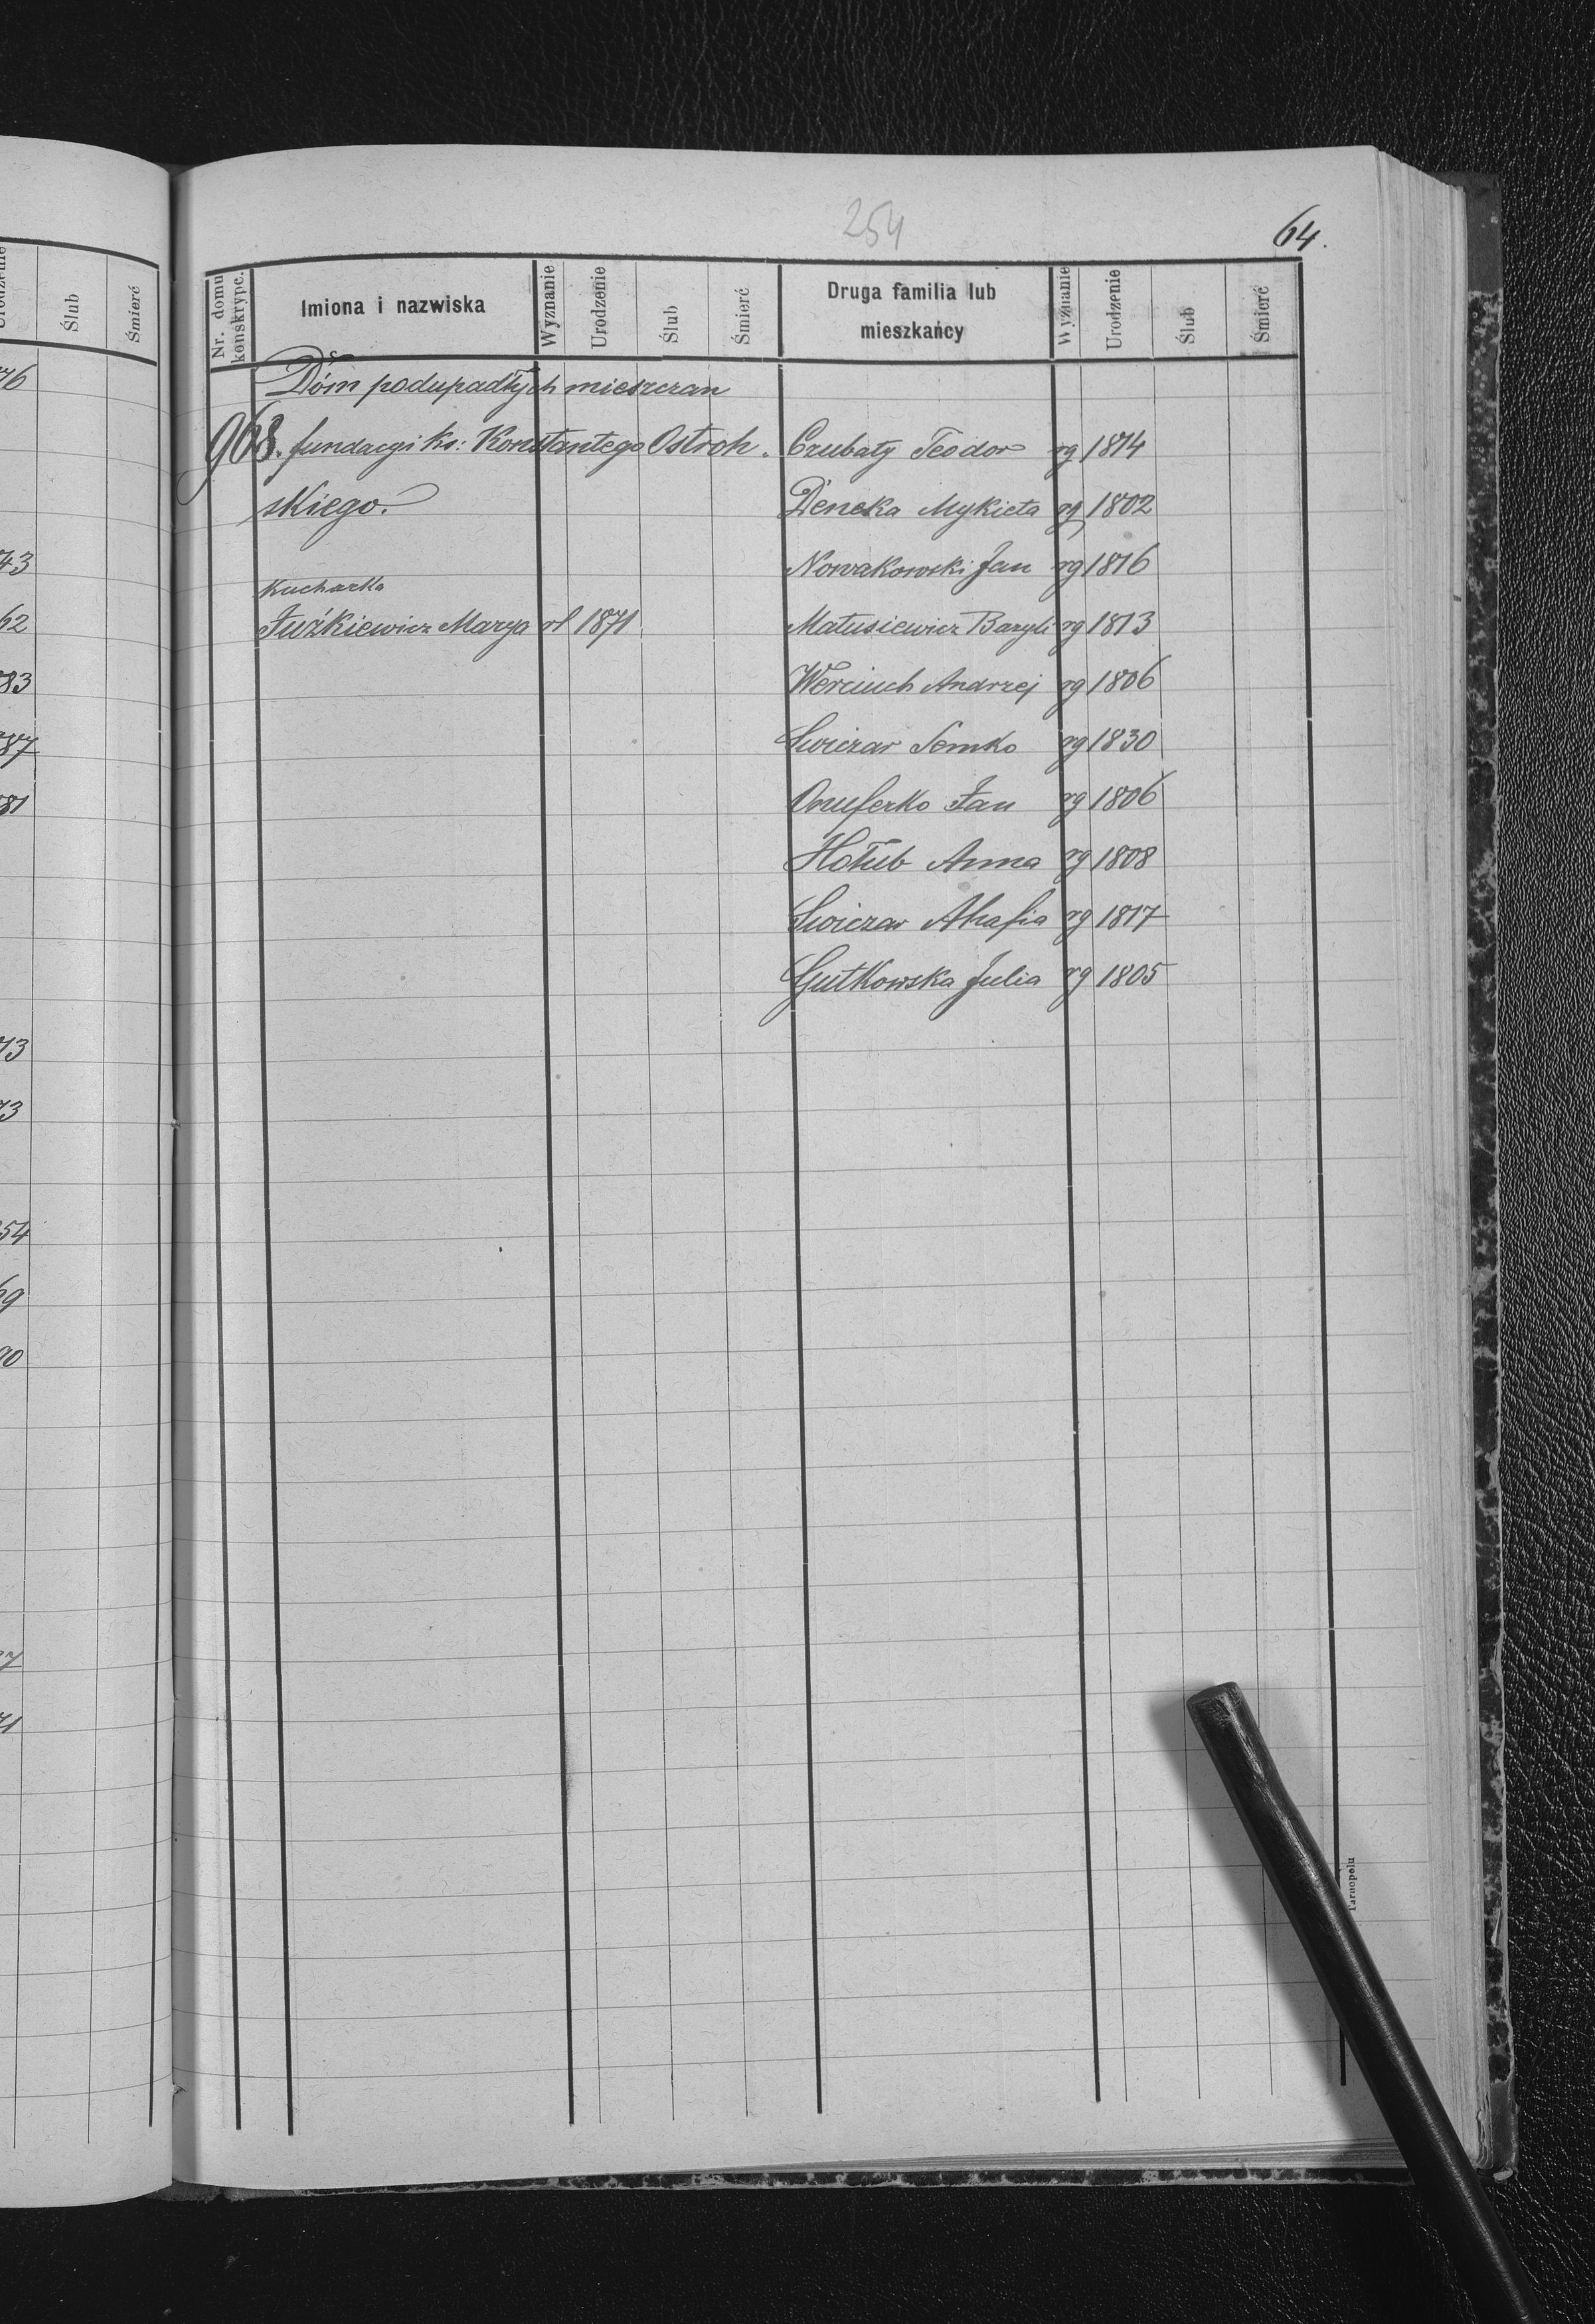 254
64.
Nr. domu konskrypc.
Imiona i nazwiska
Wyznanie
Urodzenie
Ślub
Śmierć
Druga familia lub
mieszkańcy
Wyznanie
Urodzenie
Ślub
Śmierć
Dóm podupadłych mieszczan
968. fundacyi ks: Konstantego Ostroh.
skiego.
Czubaty Teodor rg 1814
Deneka Mykieta rg 1802
Nowakowski Jan rg 1816
Kucharka
Juźkiewicz Marya rł 1871
Matusiewicz Bazyli rg 1813
Werciuch Andrzej rg 1806
Swiczar Semko rg 1830
Onuferko Jan rg 1806
Hołub Anna rg 1808
Swiczar Ahafia rg 1817
Gutkowska Julia rg 1805
Tarnopolu
Ślub
Śmierć
76
43
62
83
87
81
73
73
54
69
90
71